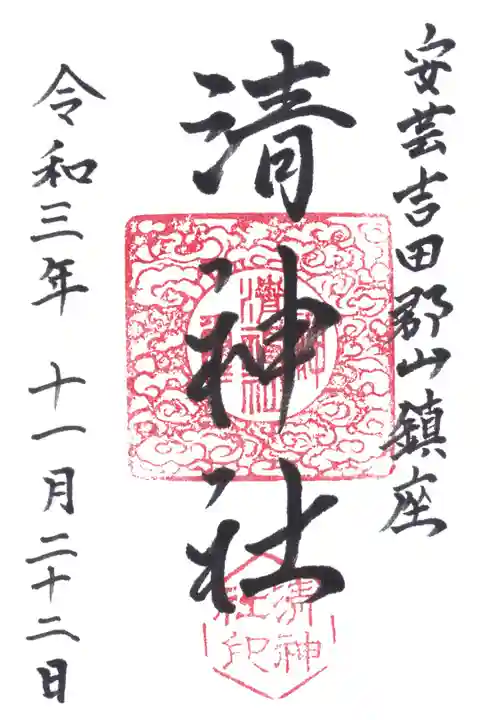 安芸吉田郡山鎮座
清神社
清神社
清神
社印
令和三年 十一月二十二日